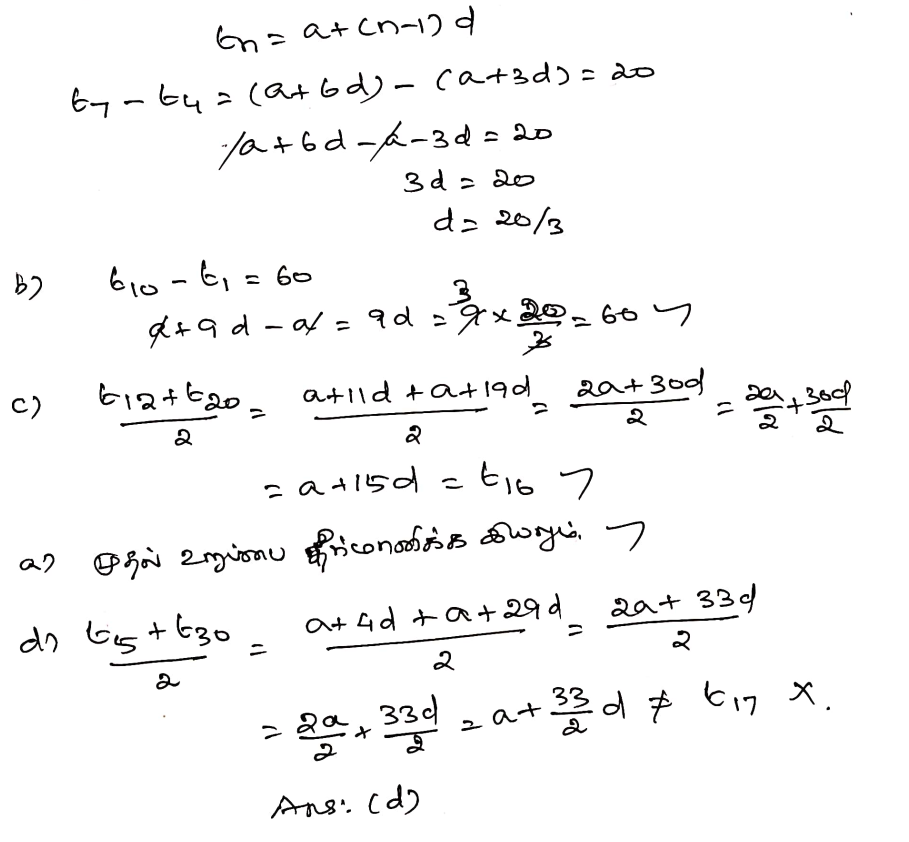 tn = a+(n-1)d
t7 - t4 = (a+6d) - (a+3d) = 20
a+6d-a-3d = 20
3d = 20
d = 20/3
b) t10 - t1 = 60
a+9d-a = 9d = 9 3 × 20/3 = 60 ✓
c) (t12+t20)/2 = (a+11d+a+19d)/2 = (2a+30d)/2 = 2a/2 + 30d/2
= a+15d = t16 ✓
a) முதல் உறுப்பை தீர்மானிக்க இயலும். ✓
d) (t5+t30)/2 = (a+4d+a+29d)/2 = (2a+33d)/2
= 2a/2 + 33d/2 = a+33/2 d ≠ t17 ×.
Ans: (d)